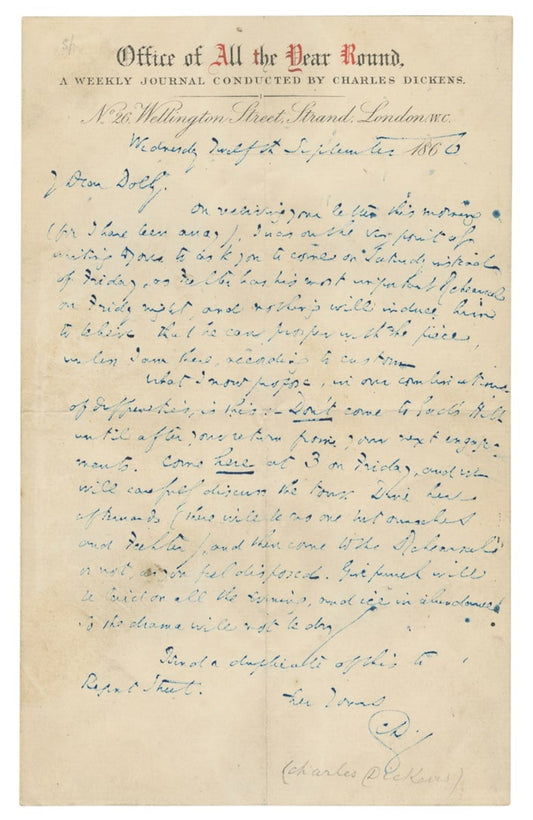 Office of All the Year Round,
A WEEKLY JOURNAL CONDUCTED BY CHARLES DICKENS.
No. 26, Wellington Street, Strand, London, W.C.
Wednesday Twelfth September 1866
My Dear Dolby.
On receiving your letter this morning
(for I have been away), I was on the very point of
writing to you to ask you to come on Saturday instead
of Friday, as Fechter has his most important Rehearsal
on Friday night, and nothing will induce him
to believe that he can prosper with the piece,
unless I am here, according to custom.
What I now propose, in our combination
of difficulties, is this:- Don't come to Gad's Hill
until after your return from your next engage-
ments. Come here at 3 on Friday, and we
will carefully discuss the tour. Dine here
afterwards (there will be no one but ourselves
and Fechter), and then come to the Rehearsal
or not, as you feel disposed. Gin punch will
be laid on all the evening, and ice in abundance
So the drama will not be dry
I send a duplicate of this to
Regent Street.
Ever Yours
CD
(Charles Dickens)